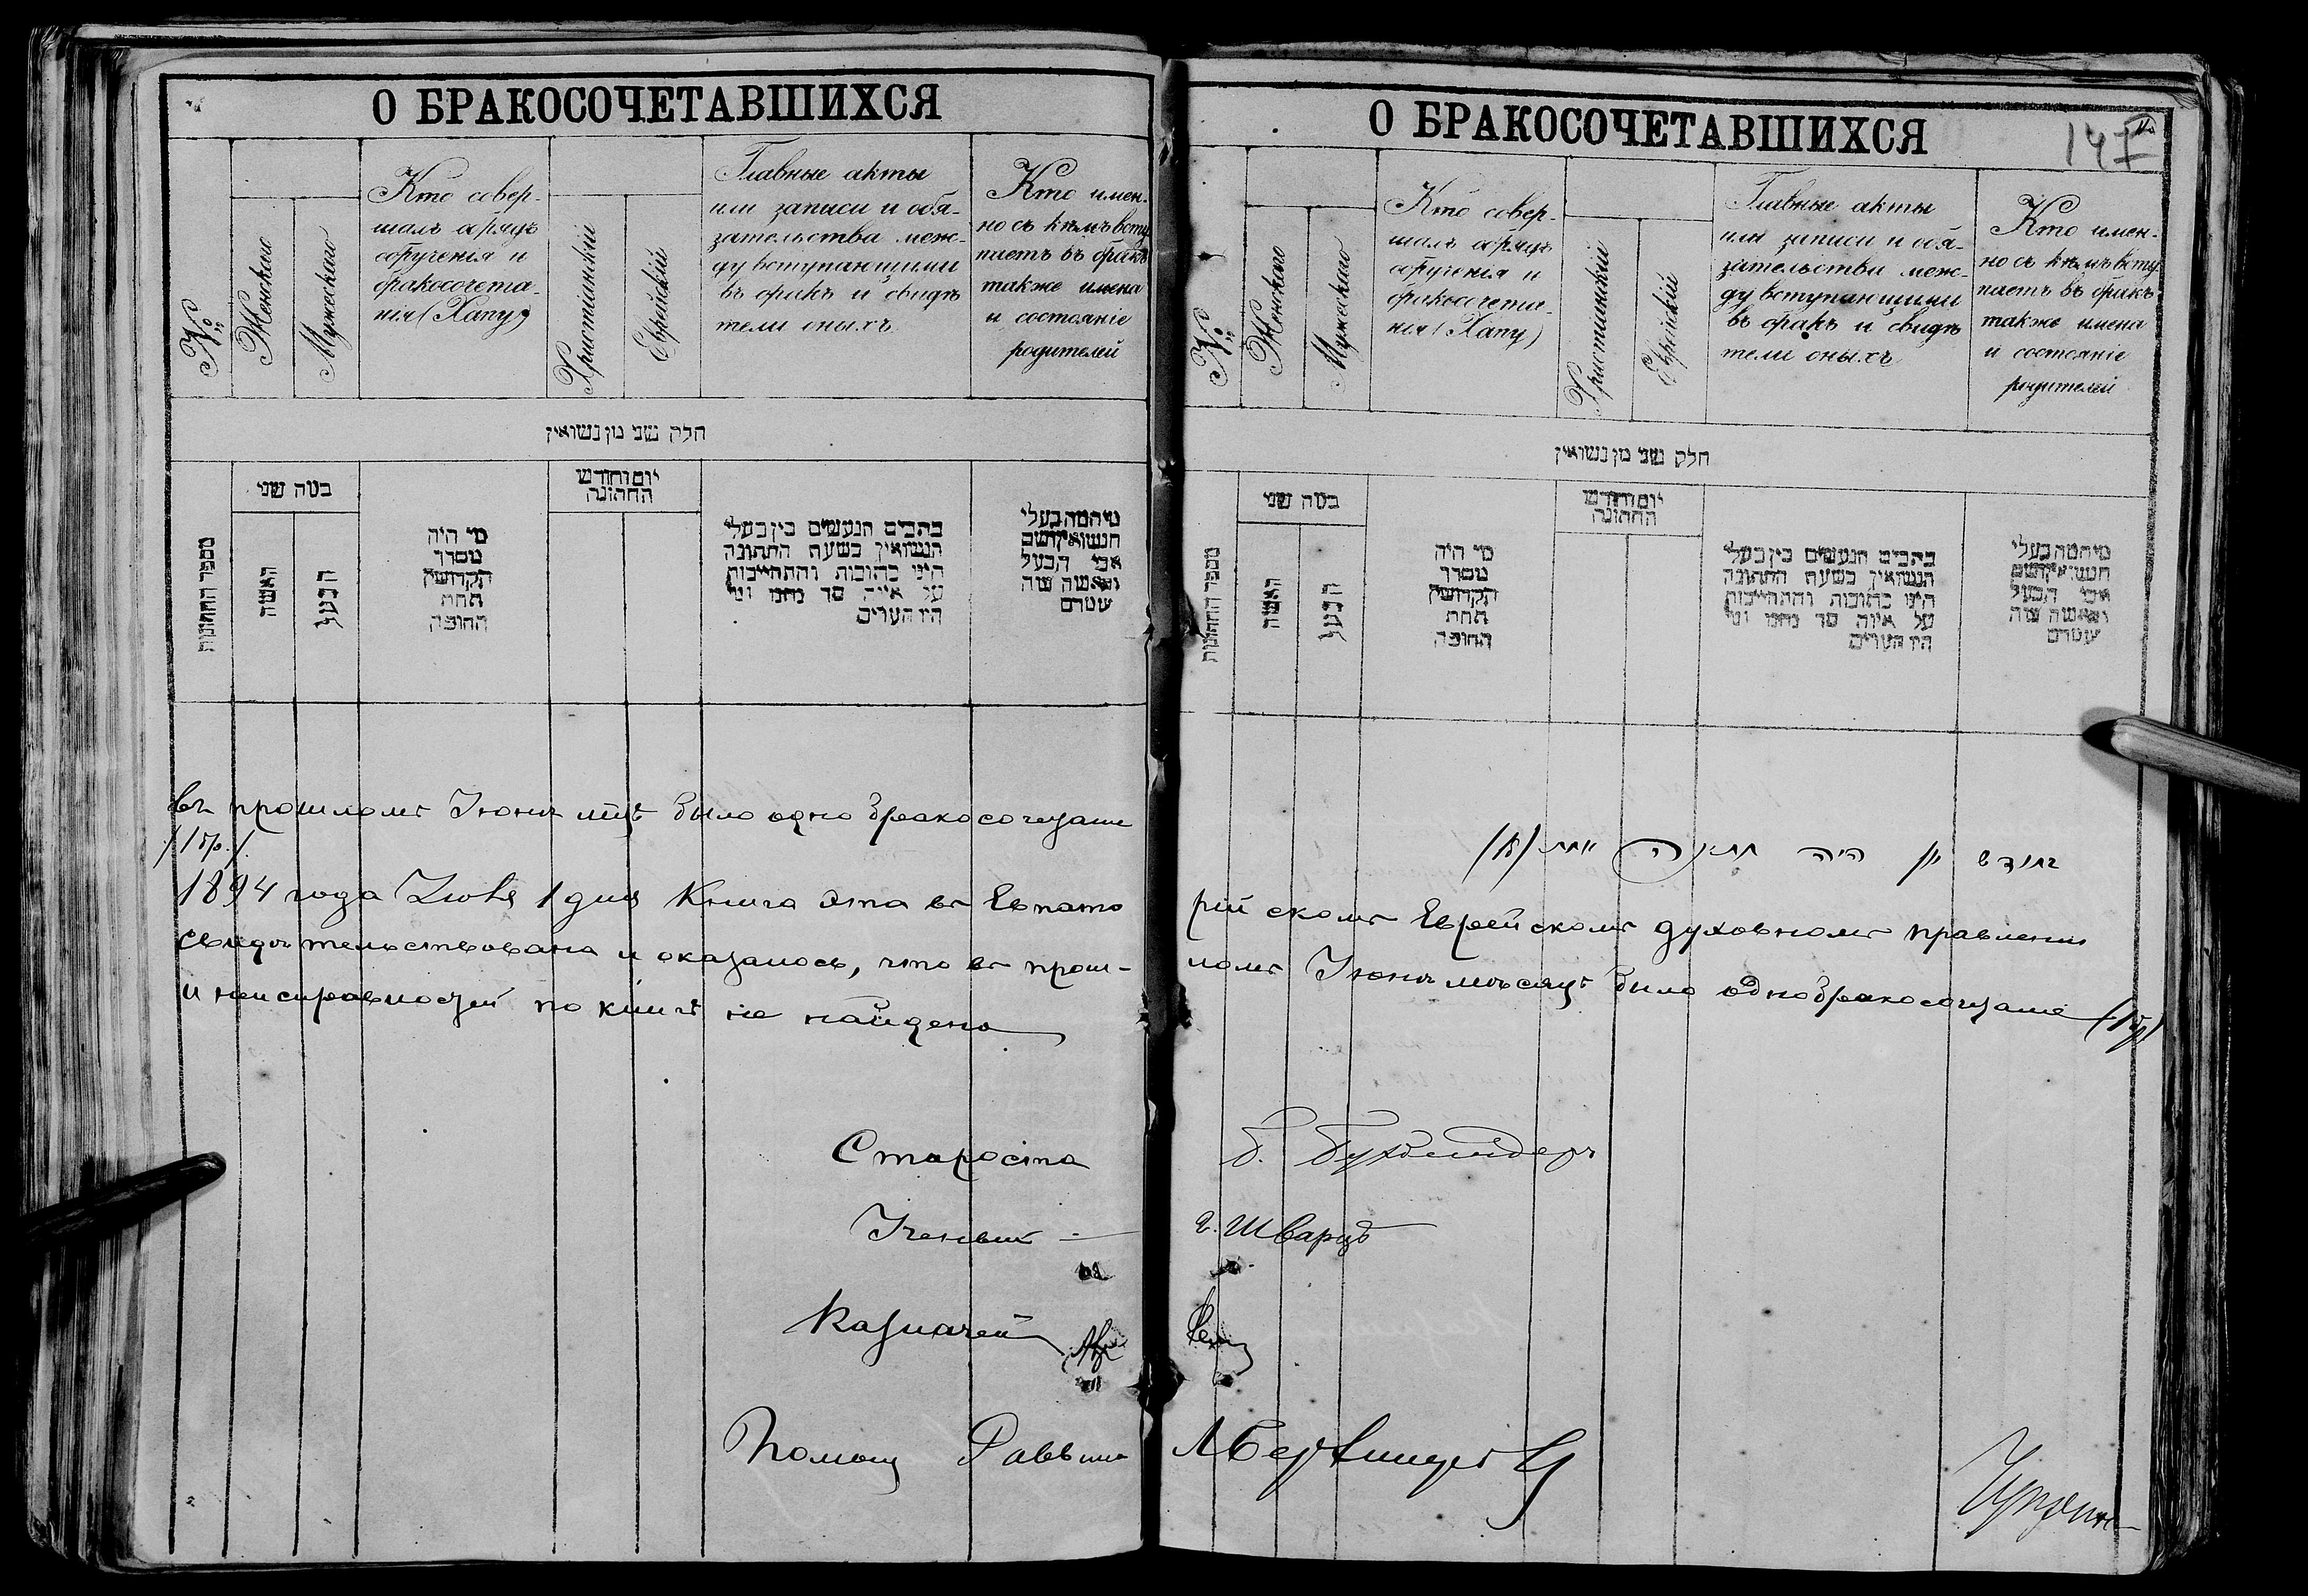 О БРАКОСОЧЕТАВШИХСЯ
№
Женскаго
Мужескаго
Кто совер-
шалъ обрядъ
обрученія и
бракосочета-
нія (Хапу)
Христіанскій
Еврейскій
Главные акты
или записи и обя-
зательства меж-
ду вступающими
въ бракъ и свидѣ
тели оныхъ
Кто имен-
но съ кѣмъ всту
паетъ въ бракъ
также имена
и состояніе
родителей
חלק שני מן נשואין
מספר החתונות
כמה שני
האשה
הבעל
מי היה
מסדר
הקדושין
תחת
החופה
יום וחודש
החתונה
כתבים הנעשים בין בעלי
הנשואין בשעת החתונה
היינו כתובות והתחייבות
על איזה סך
היו העדים
אבי הבעל
въ прошломъ Іюнѣ мцѣ было одно бракосочетаніе
/1 бр./
1894 года Іюля 1 дня Книга эта въ Евпато
свидѣтельствована и оказалось, что въ прош-
и неисправностей по книгѣ не найдено
Староста
Ученый
Казначей
Помощ Раввина
О БРАКОСОЧЕТАВШИХСЯ
14
№
Женскаго
Мужескаго
Кто совер-
шалъ обрядъ
обрученія и
бракосочета-
нія (Хапу)
Христіанскій
Еврейскій
Главные акты
или записи и обя-
зательства меж-
ду вступающими
въ бракъ и свидѣ
тели оныхъ
Кто имен-
но съ кѣмъ всту
паетъ въ бракъ
также имена
и состояніе
родителей
חלק שני מן נשואין
מספר החתונות
כמה שני
האשה
הבעל
מי היה
מסדר
הקדושין
תחת
החופה
יום וחודש
החתונה
כתבים הנעשים בין בעלי
הנשואין בשעת החתונה
היינו כתובות והתחייבות
על איזה סך
היו העדים
אבי הבעל
חודש יון היה חתונה אחת (1)
рійскомъ Еврейскомъ духовномъ правленіи
ломъ Іюнѣ мѣсяцѣ было одно бракосочетаніе (1 бр)
Б. Бухбиндеръ
Шварцъ